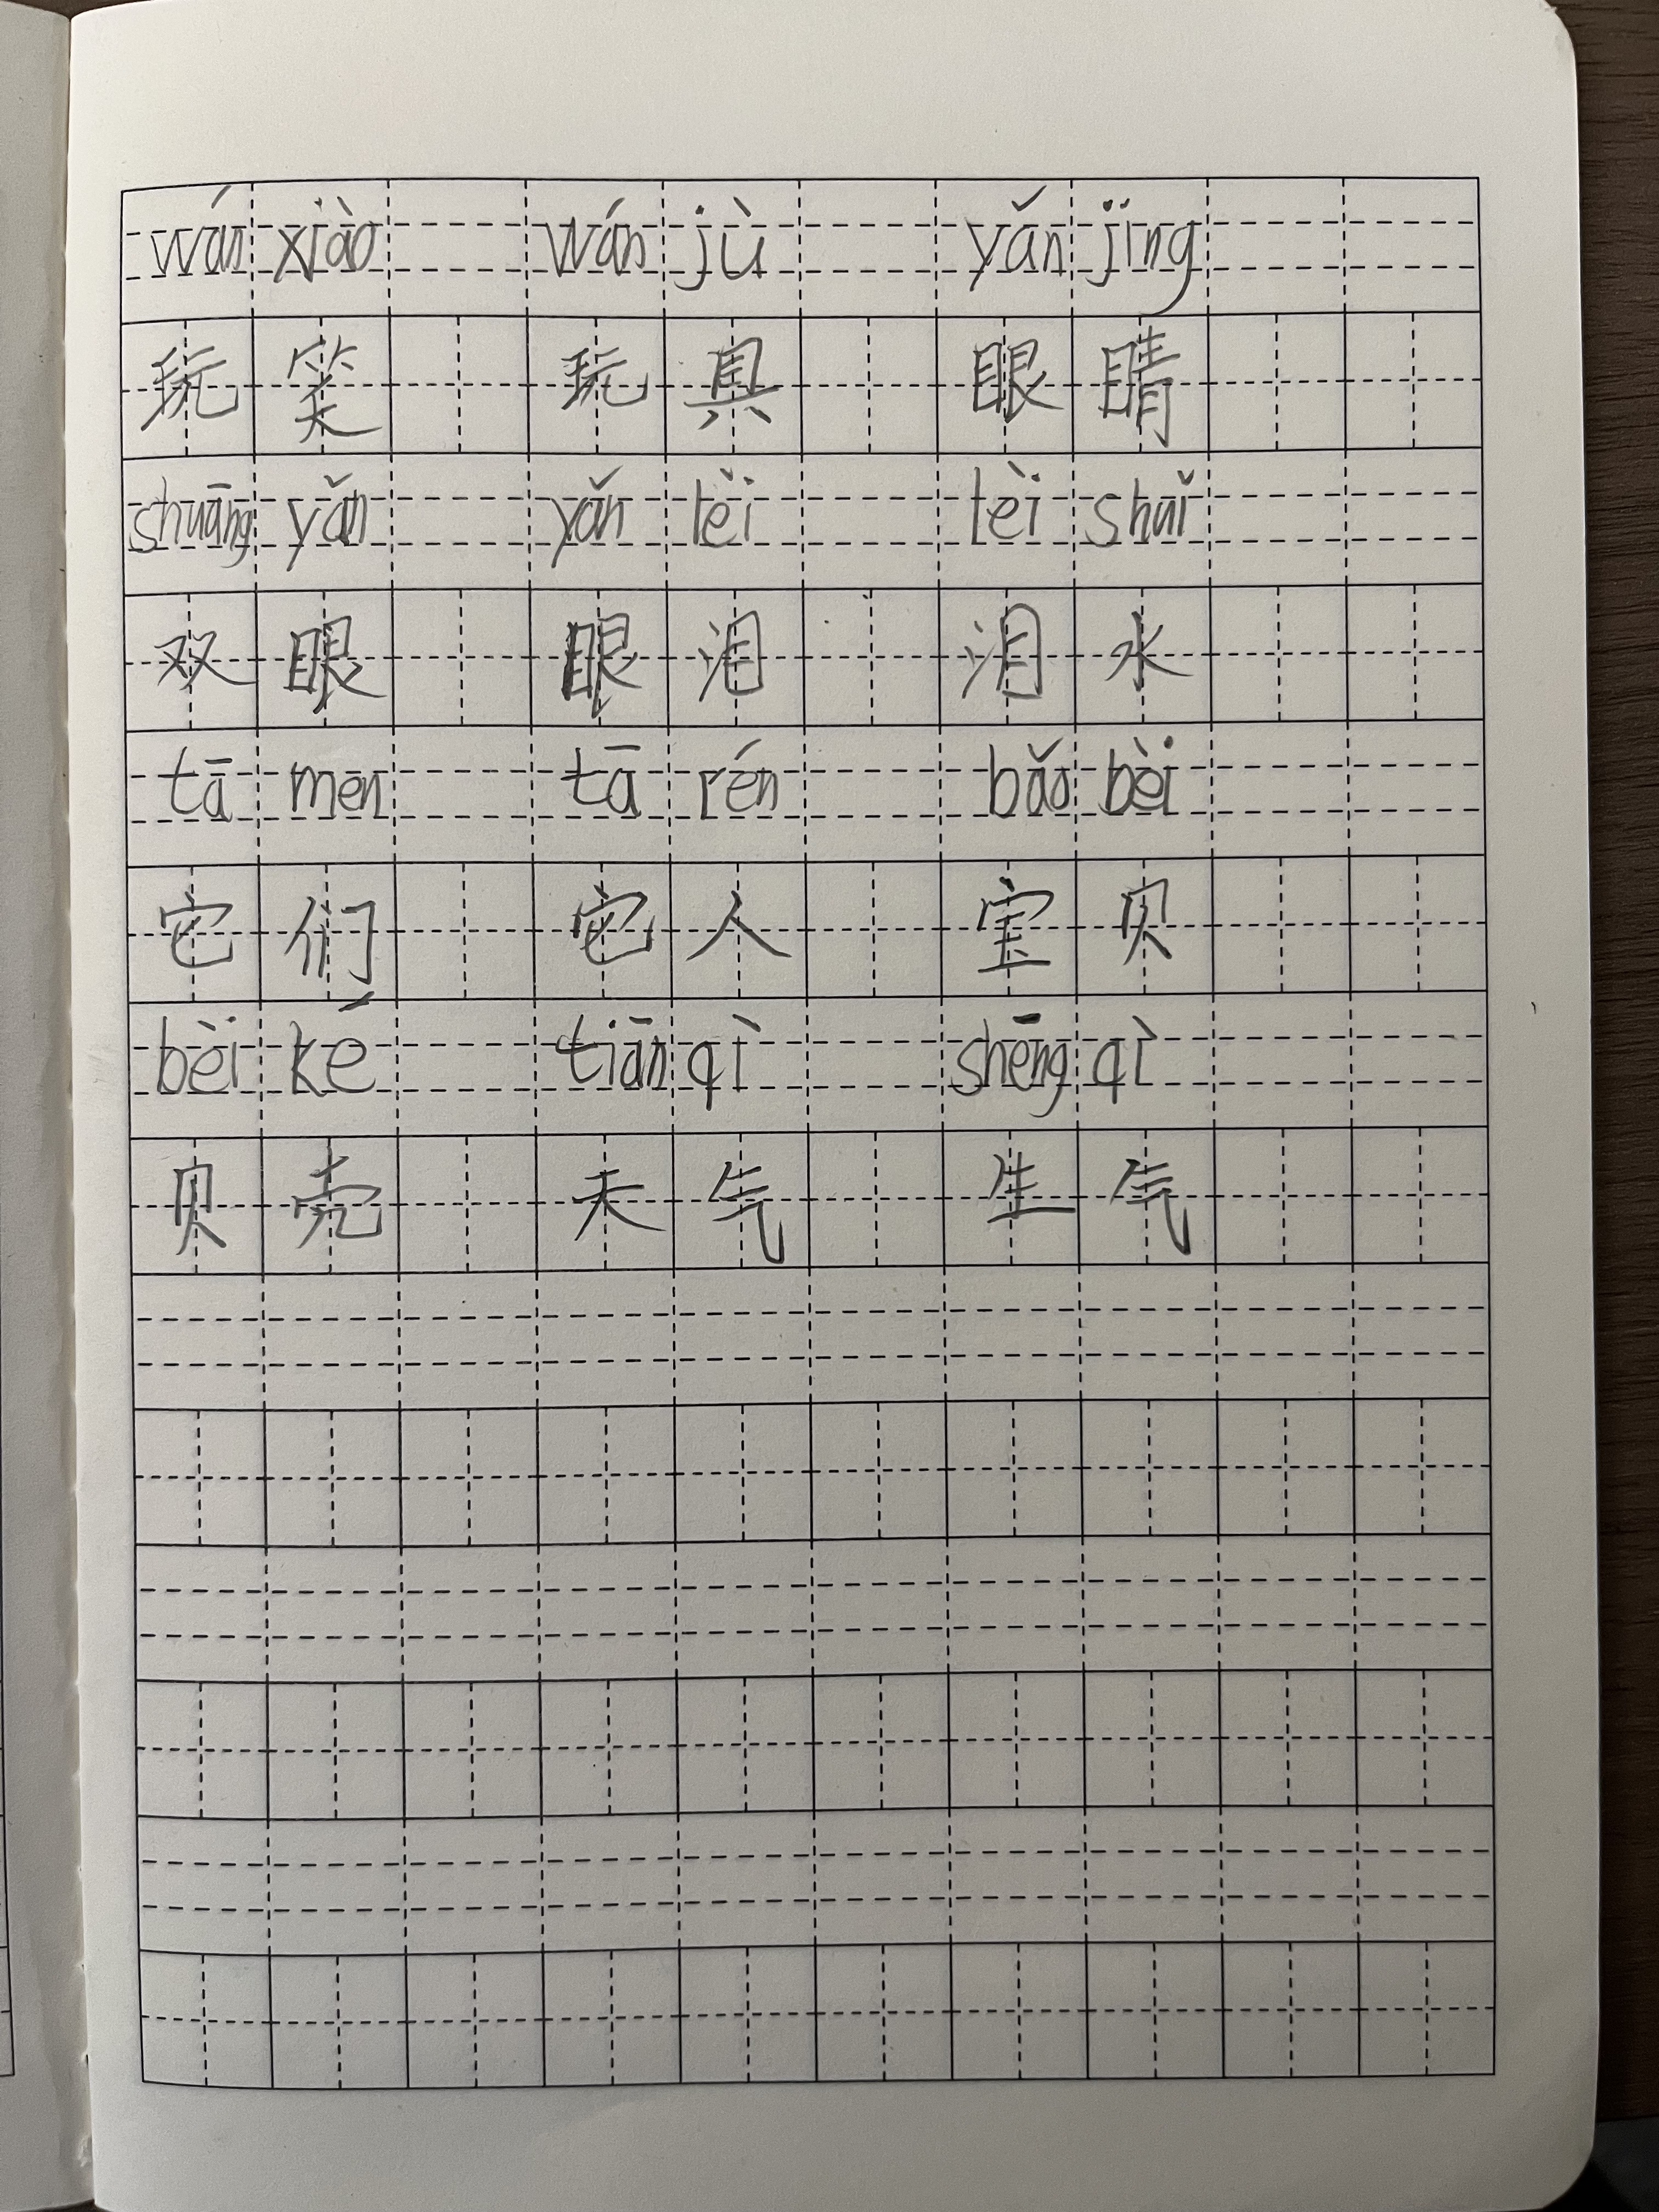 wán xiào wán jù yǎn jīng
玩笑 玩具 眼睛
shuāng yǎn yǎn lèi lèi shuǐ
双眼 眼泪 泪水
tā men tā rén bǎo bèi
它们 它人 宝贝
bèi ké tiān qì shēng qì
贝壳 天气 生气